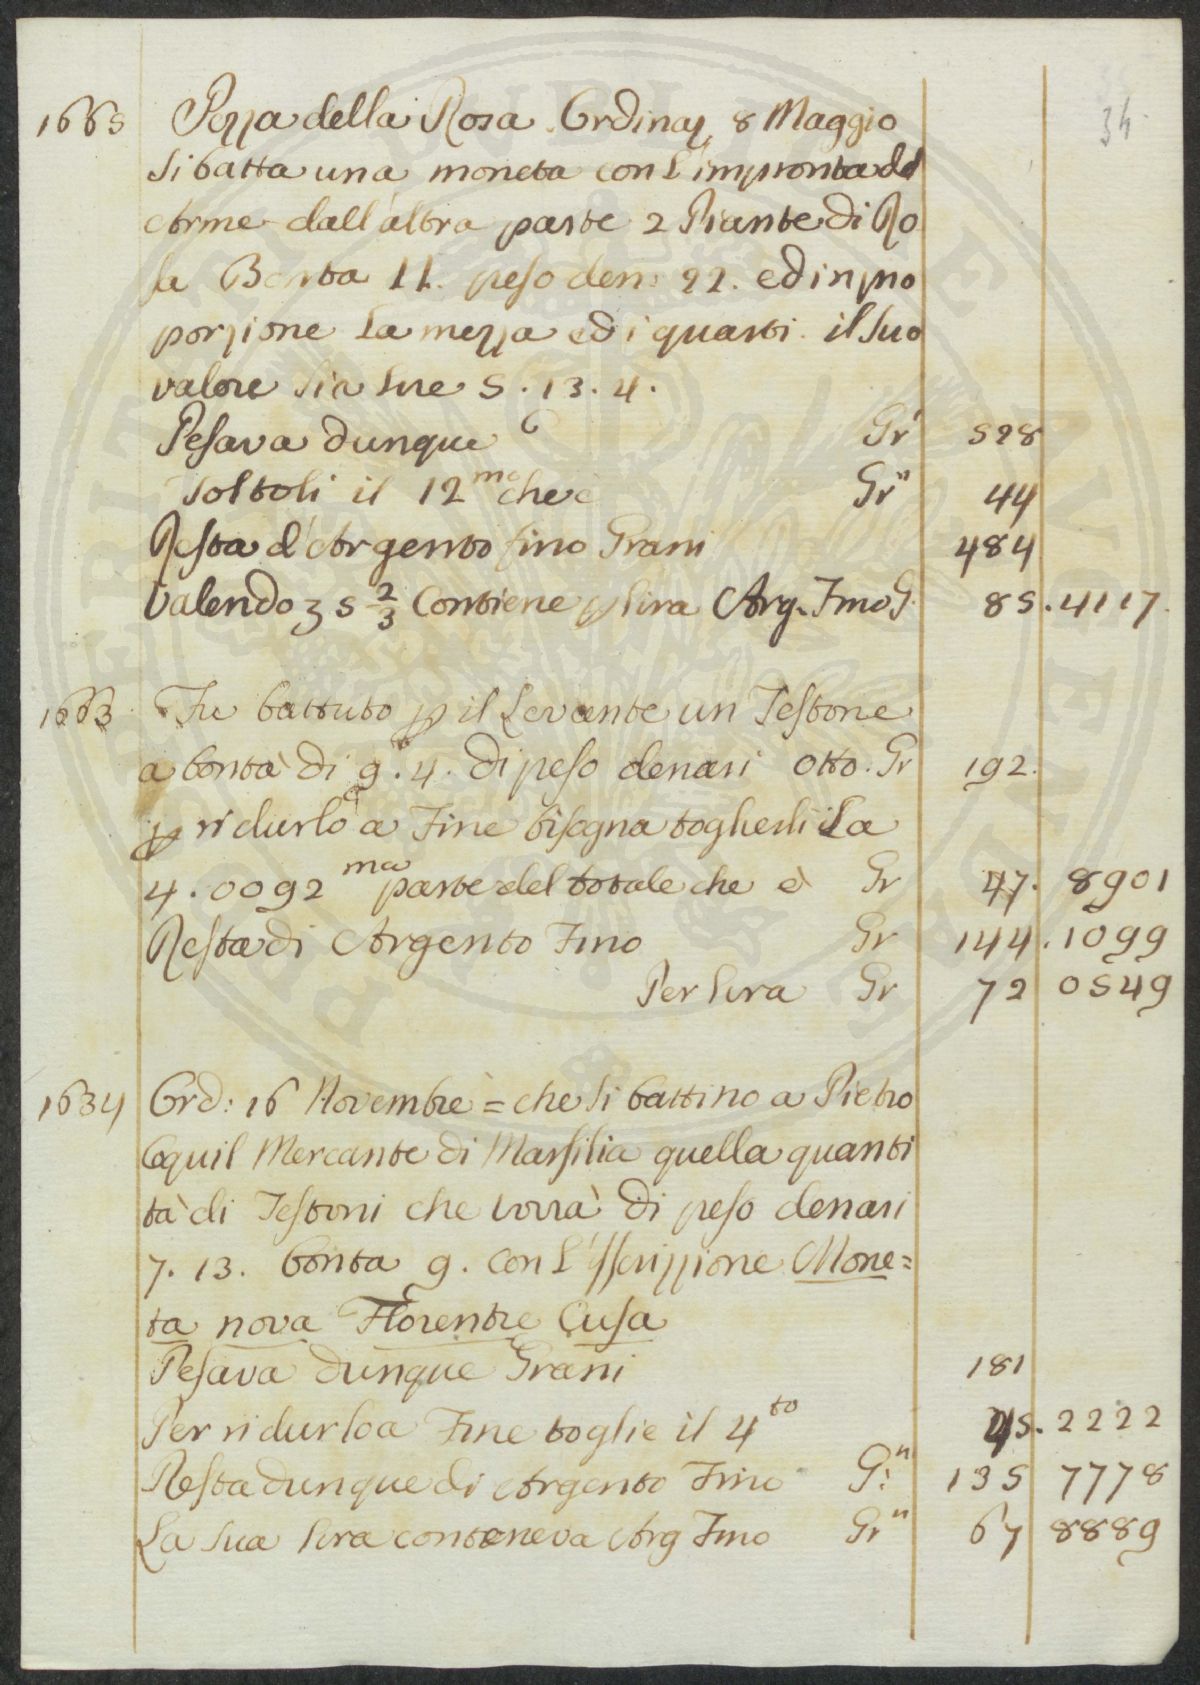 34
1665 Pezza della Rosa Ordinaz. 8 Maggio
Si batta una moneta con l'impronta del
Arme dall'altra parte 2 Piante di Ro
sa Bontà 11. peso den: 22. ed in pro
porzione la mezza ed i quarti. il suo
valore sia lire 5. 13. 4.
Pesava dunque Gr 528
Toltoli il 12mo che è Grn 44
Resta d'Argento fino Grani 484
Valendo 5 2/3 Contiene p lira Arg. Fino G. 85.4117.
1663 Fu battuto p il Levante un Testone
a bontà di 9.4. di peso denari otto. Gr 192.
p ridurlo a Fine bisogna togherli la
4.0092 ma parte del totale che è Gr 47.8901
Resta di Argento Fino Gr 144.1099
Per lira Gr 72 0549
1634 Ord: 16 Novembre = che si battino a Pietro
Coquil Mercante di Marsilia quella quanti
tà di Testoni che vorrà di peso denari
7.13. bontà 9. con l'Iscrizzione Mone=
ta nova Florentre Cusa
Pesava dunque Grani 181
Per ridurlo a Fine toglie il 4to 45.2222
Resta dunque di Argento Fino G:n 135 7778
La sua lira conteneva Arg Fino Grn 67 8889